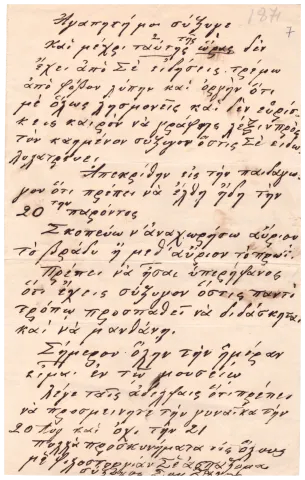 1871
7
Ἀγαπητή μου σύζυγε
Καὶ μέχρι ταύτης τῆς ὥρας δὲν
ἔχω ἀπὸ Σὲ εἰδήσεις. τρέμω
ἀπὸ φόβον λύπην καὶ ὀργὴν ὅτι
μὲ ὅλως λησμονεῖς καὶ δὲν εὑρίσ-
κεις καιρὸν νὰ γράψῃς λέξιν πρὸς
τὸν καημένον σύζυγον ὅστις Σὲ εἰδω-
λολατρεύει.
Ἀπεκρίθην εἰς τὴν παιδαγω-
γον ὅτι πρέπει νὰ ἔλθῃ ἤδη τὴν
20 την παρόντος
Σκοπεύω ν' ἀναχωρήσω αὔριον
τὸ βράδυ ἢ μεθ' αὔριον τὸ πρωΐ.
Πρέπει νὰ ἦσαι ὑπερήφανος
ὅτι ἔχεις σύζυγον ὅστις παντὶ
τρόπῳ προσπαθεῖ νὰ διδάσκηται
καὶ νὰ μανθάνῃ.
Σήμερον ὅλην τὴν ἡμέραν
εἶμαι ἐν τῷ μουσείῳ
λέγε ταῖς ἀδελφαῖς ὅτι πρέπει
νὰ προσμείνητε τὴν γυναῖκα τὴν
20 την καὶ ὄχι τὴν 21
πολλὰ προσκυνήματα εἰς ὅλους
μὲ φιλοστοργίαν Σὲ ἀσπάζομαι
σύζυγος Σου